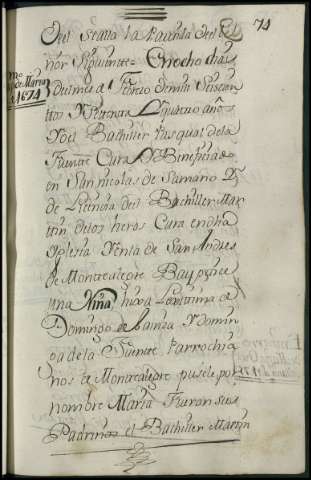 74
Qui se alla la Partida del te
nor siguiente = En ocho dias
del mes de Febrero de mil seiscien
tos y setenta y quatro años
Yo el Bachiller Pasqual de la
Fuente Cura y Beneficiado
en San nicolas de Samano De
de Licencia del Bachiller Mar
tin de los heros Cura en dha
Iglesia y en la de San Andres
de Montealegre Baupticé
una Niña, hixa Lexitima de
Domingo de la y domin
ga de la Fuente Parrochia
nos de Montealegre pusele por
nombre Maria Fueron sus
Padrinos el Bachiller Martin
de Maria
1674